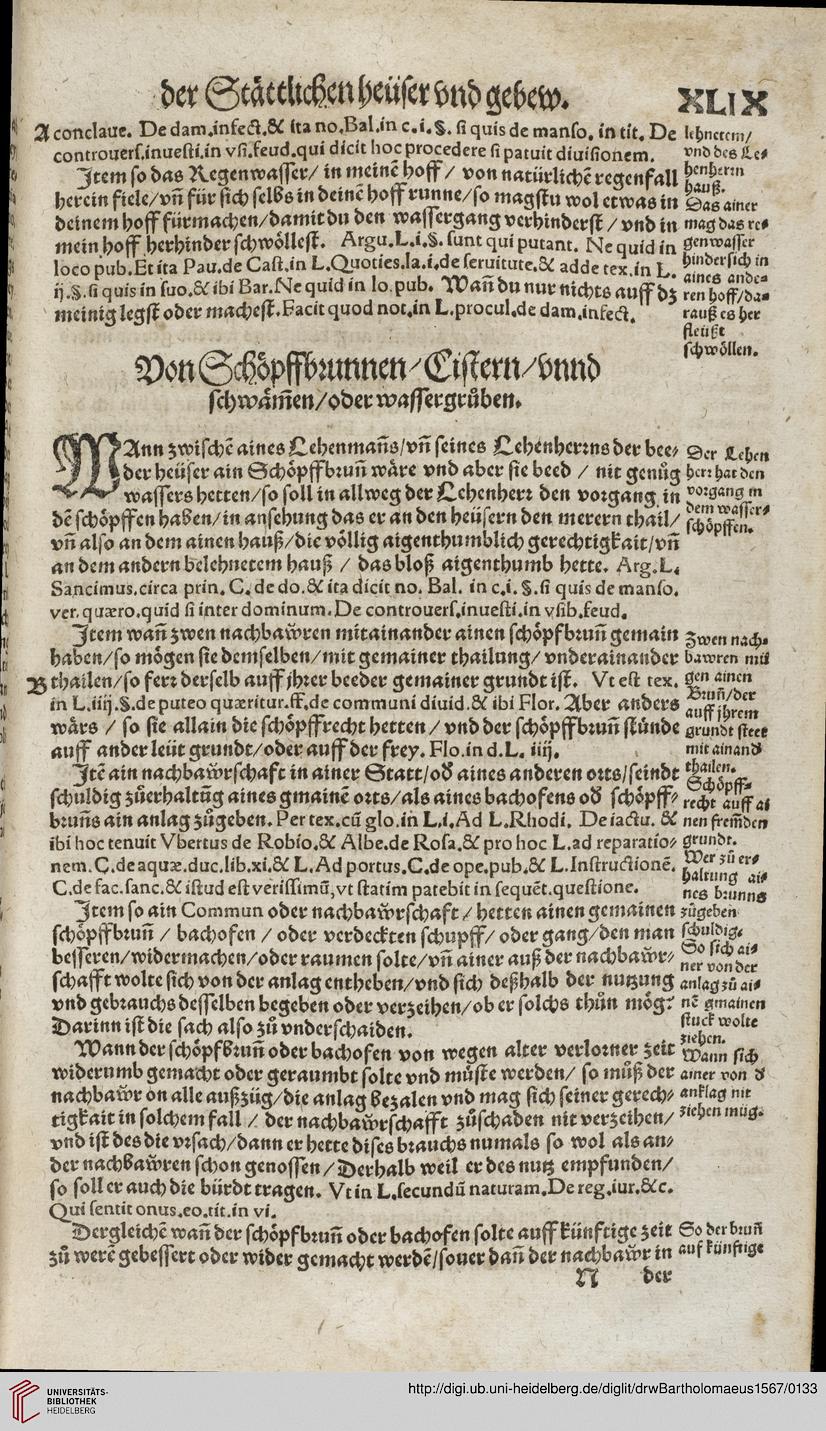 der Stättlichen heüser vnd gebew.
XLIX
A conclaue. De dam.infect.& ita no.Bal.in c.i.§. si quis de manso. in tit. De
controuers.inuesti.in vsi.feud.qui dicit hoc procedere si patuit diuisionem.
Item so das Regenwasser/ in meinē hoff / von natürlichē regenfall
herein fiele/vñ für sich selbs in deinē hoff runne/so magstu wol etwas in
deinem hoff fürmachen/damit du den wassergang verhinderst / vnd in
mein hoff herhinder schwöllest. Argu.L.i.§. sunt qui putant. Ne quid in
loco pub.Et ita Pau.de Cast.in L.Quoties.la.i.de seruitute.& adde tex.in L.
ij.§.si quis in suo.& ibi Bar.Ne quid in lo.pub. Wañ du nur nichts auff dz
meinig legst oder machest.Facit quod not.in L.procul.de dam.infect.
lehnetem/
vnd des Le⸗
henherrn
hauß.
Das ainer
mag das re⸗
genwasser
hindersich in
aines ande⸗
ren hoff/da⸗
rauß es her
fleüßt
schwöllen.
Von Schöpffbrunnen/Cistern/vnnd
schwäm̄en/oder wassergrůben.
WAnn zwischē aines Lehenmañs/vñ seines Lehenherrns der bee⸗
der heüser ain Schöpffbruñ wäre vnd aber sie beed / nit genůg
wassers hetten/so soll in allweg der Lehenherr den vorgang in
dē schöpffen haben/in ansehung das er an den heüsern den merern thail/
vñ also an dem ainen hauß/die völlig aigenthumblich gerechtigkait/vñ
an dem andern belehnetem hauß / das bloß aigenthumb hette. Arg.L.
Sancimus.circa prin. C. de do.& ita dicit no. Bal. in c.i. §.si quis de manso.
ver.quæro.quid si inter dominum.De controuers.inuesti.in vsib.feud.
Der Lehen
herr hat den
vorgang in
dem wasser⸗
schöpffen.
Item wañ zwen nachbawren mitainander ainen schöpfbruñ gemain
haben/so mögen sie demselben/mit gemainer thailung/ vnderainander
B thailen/so ferr derselb auff jhrer beeder gemainer grundt ist. Vt est tex.
in L.iiij.§.de puteo quæritur.ff.de communi diuid.& ibi Flor. Aber anders
wärs / so sie allain die schöpffrecht hetten / vnd der schöpffbruñ stünde
auff ander leüt grundt/oder auff der frey. Flo.in d.L. iiij.
Zwen nach⸗
bawren mü
gen ainen
Bruñ/der
auff jhrem
grundt steet
mit ainand
thailen.
Itē ain nachbawrschaft in ainer Statt/od aines anderen orts/seindt
schuldig zůerhaltūg aines gmainē orts/als aines bachofens od schöpff⸗
bruñs ain anlag zůgeben. Per tex.cū glo.in L.i.Ad L.Rhodi. De iactu. &
ibi hoc tenuit Vbertus de Robio.& Albe.de Rosa.& pro hoc L.ad reparatio⸗
nem.C.de aquæ.duc.lib.xi.& L.Ad portus.C.de ope.pub.& L.Instructionē.
C.de fac.sanc.& istud est verissimū,vt statim patebit in sequēt.questione.
Schöpff⸗
recht auff ai
nen frem̄den
grundt.
Wer zů er⸗
haltung ai⸗
nes brunns
zůgeben
schuldig.
Item so ain Commun oder nachbawrschaft / hetten ainen gemainen
schöpffbruñ / bachofen / oder verdeckten schupff/ oder gang/den man
besseren/widermachen/oder raumen solte/vñ ainer auß der nachbawr⸗
schafft wolte sich von der anlag entheben/vnd sich deßhalb der nutzung
vnd gebrauchs desselben begeben oder verzeihen/ob er solchs thůn mög?
Darinn ist die sach also zů vnderschaiden.
So sich ai⸗
ner von der
anlag zů ai⸗
nē gmainen
stuck wolte
ziehen.
Wann der schöpfbruñ oder bachofen von wegen alter verlorner zeit
widerumb gemacht oder geraumbt solte vnd müste werden/ so můß der
nachbawr on alle außzüg/die anlag bezalen vnd mag sich seiner gerech⸗
tigkait in solchem fall / der nachbawrschafft zůschaden nit verzeihen/
vnd ist des die vrsach/dann er hette dises brauchs numals so wol als an⸗
der nachbawren schon genossen/Derhalb weil er des nutz empfunden/
so soll er auch die bürdt tragen. Vt in L.secundū naturam.De reg.iur.&c.
Qui sentit onus.eo.tit.in vi.
Wann sich
ainer von d
anklag nit
ziehen müg.
Dergleichē wañ der schöpfbruñ oder bachofen solte auff künftige zeit
zů werē gebessert oder wider gemacht werdē/souer dañ der nachbawr in
So der bruñ
auf künftige
N der
UNIVERSITÄTS-
BIBLIOTHEK
HEIDELBERG
http://digi.ub.uni-heidelberg.de/diglit/drwBartholomaeus1567/0133